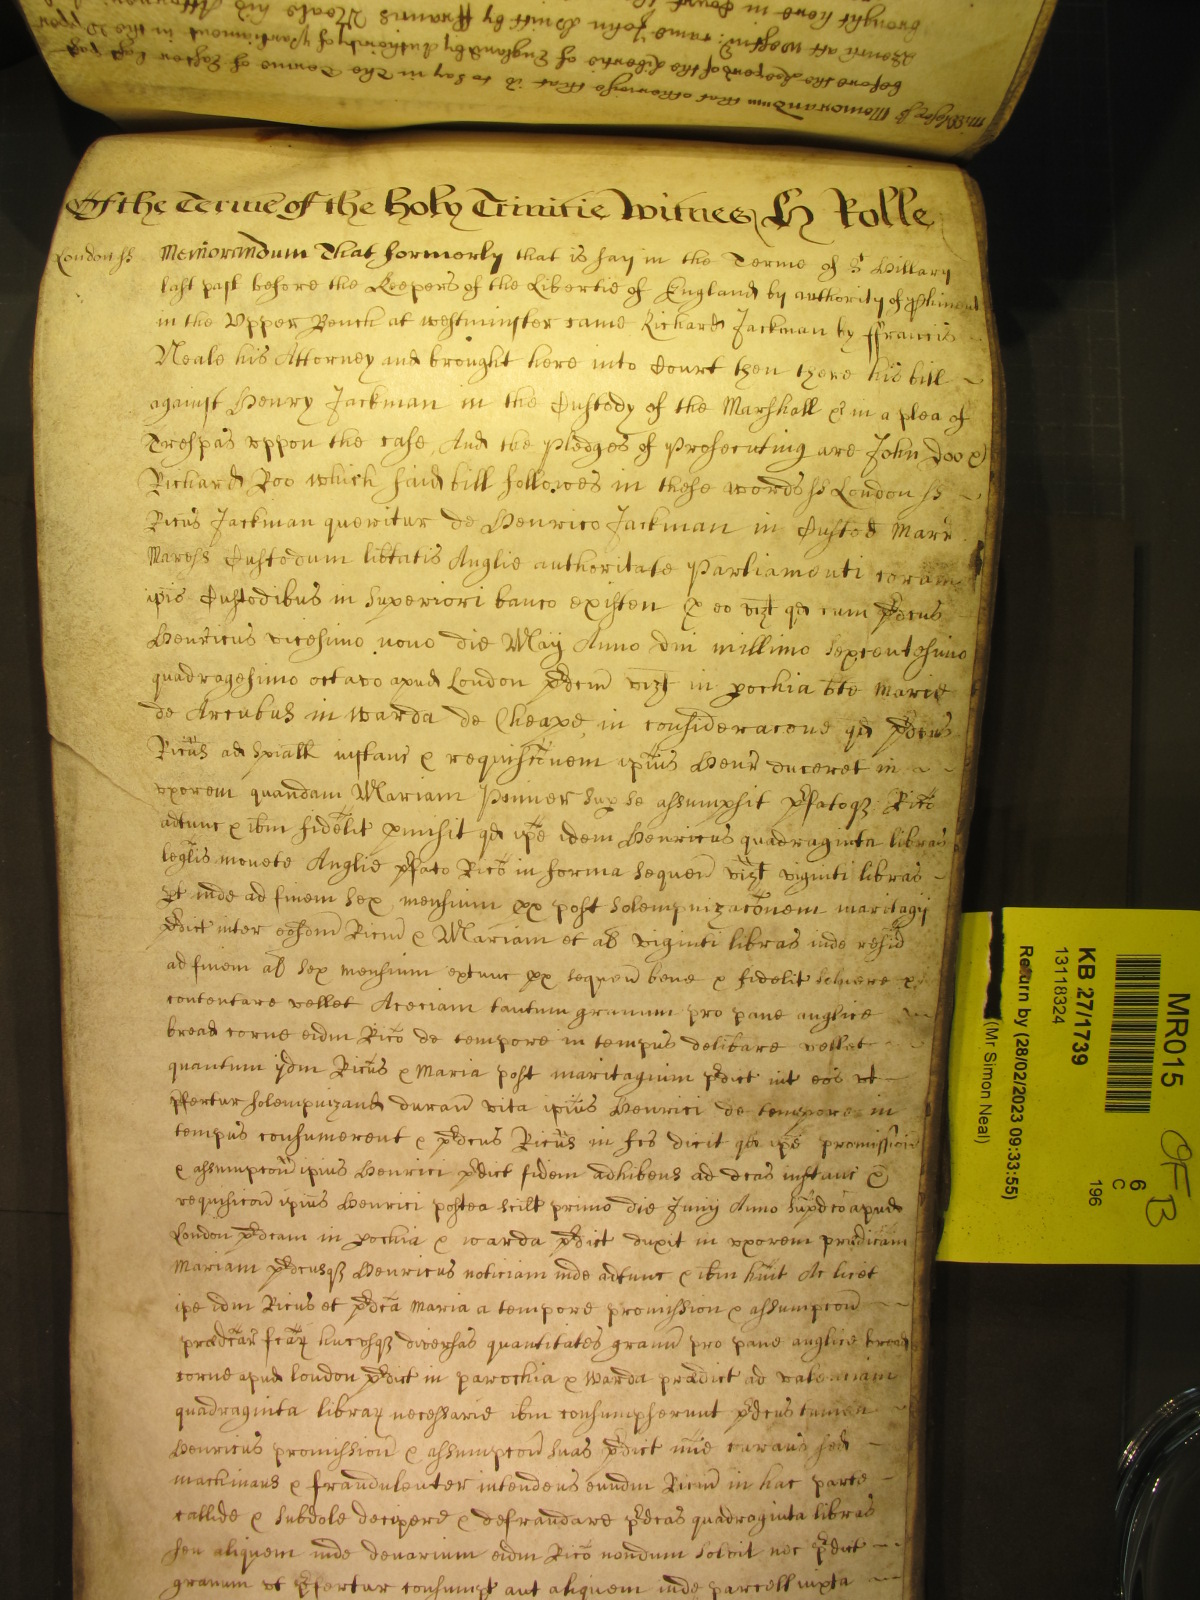 Middlesex ss Memorandum that otherwise that is to say in the Terme of Easter last past
before the Keepers of the Libertie of England by Authority of Parliament in the Upper
Bench att Westmr: came John by Francis Neale his Attorney
brought here in Court
Of the Terme of the Holy Trinitie Witnes H Rolle
London ss Memorandum That formerly that is say in the Terme of St Hillary
last past before the Keepers of the Libertie of England by authority of Pliment
in the Upper Bench at Westminster came Richard Jackman by ffrancis
Neale his Attorney and brought here into Court then there his bill
against Henry Jackman in the Custody of the Marshall &c in a plea of
Trespas uppon the case And the Pledges of Prosecuting are John Doo &
Richard Roo which said bill followes in these words ss London ss
Ricus Jackman queritur de Henrico Jackman in Custod Marr
Maress Custodum libtatis Anglie authoritate Parliamenti coram
ipis Custodibus in superiori banco existen p eo vizt qd cum pdcus
Henricus vicesimo nono die Maij Anno dni millimo sexcentesimo
quadragesimo octavo apud London pdcm vizt in pochia bte Marie
de Arcubus in Warda de Cheape in consideracone qd pdcus
Ricus ad spialk instanc & requisiconem ipius Henr duceret in
uxorem quandam Mariam Pinner sup se assumpsit pfatoqz Rico
adtunc & ibm fidelit pmisit qd ipe idem Henricus quadraginta libras
legalis monete Anglie pfato Rico in forma sequen vizt viginti libras
inde ad finem sex mensium px post solempnizaconem maritagij
pdict inter eosdm Ricum & Mariam et al viginti libras inde resid
ad finem al sex mensium extunc px sequen bene & fidelit solvere &
contentare vellet Aceciam tantum granum pro pane anglice
bread corne eidm Rico de tempore in tempus delibare vellet
quantum ijdm Ricus & Maria post maritagium pdict int eos ut
pfertur solempnizand duran vita ipius Henrici de tempore in
tempus consumerent & pdcus Ricus in fcs dicit qd ipe promission
& assumpcon ipius Henrici pdict fidem adhibens ad dcas instanc &
requisicon ipius Henrici postea scilt primo die Junij Anno supdco apud
London pdcam in pochia & warda pdict duxit in uxorem predictam
Mariam pdcusqz Henricus noticiam inde adtunc & ibm huit Ac licet
ipe idm Ricus et pdca Maria a tempore promission & assumpcon
predcar fcar hucusqz diversas quantitates gran pro pane anglice bread
corne apud London pdict in parochia & Warda predict ad valenciam
quadraginta librar necessarie ibm consumpserunt pdcus tamen
Henricus promission & assumpcon suas pdict mie curans sed
machinans & fraudulenter intendens eundm Ricum in hac parte
callide & subdole decipere & defraudare pdcas quadraginta libras
seu aliquem inde denarium eidm Rico nondum solvit nec pdict
granum ut pfertur consumpt aut aliquem inde parcell iuxta
MR015
KB 27/1739
13118324
Return by (28/02/2023 09:33:55)
(Mr Simon Neal)
6
C
196
OFB